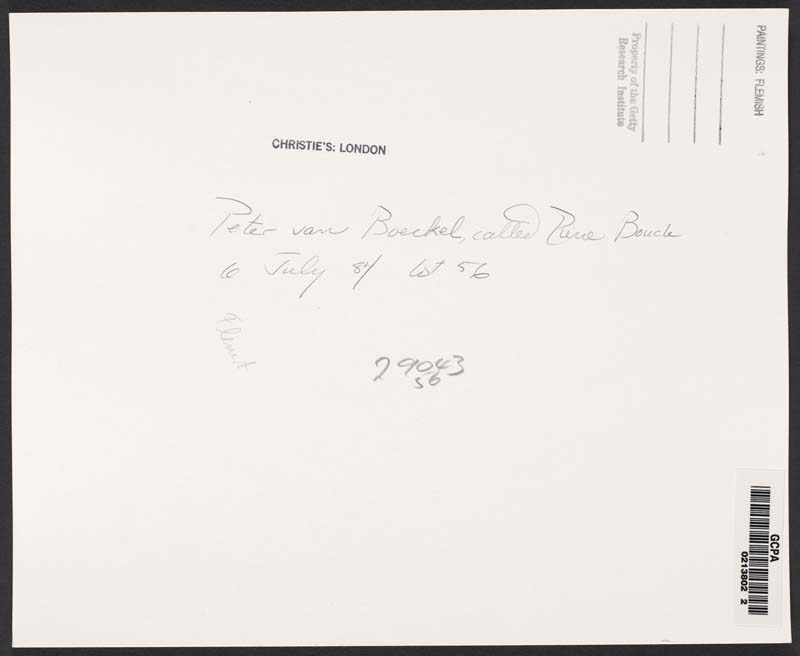 PAINTINGS: FLEMISH
Property of the Getty
Research Institute
CHRISTIE'S: LONDON
Peter van Boeckel, called Boucle
6 July 84 lot 56
29043
56
GCPA
0213802 2